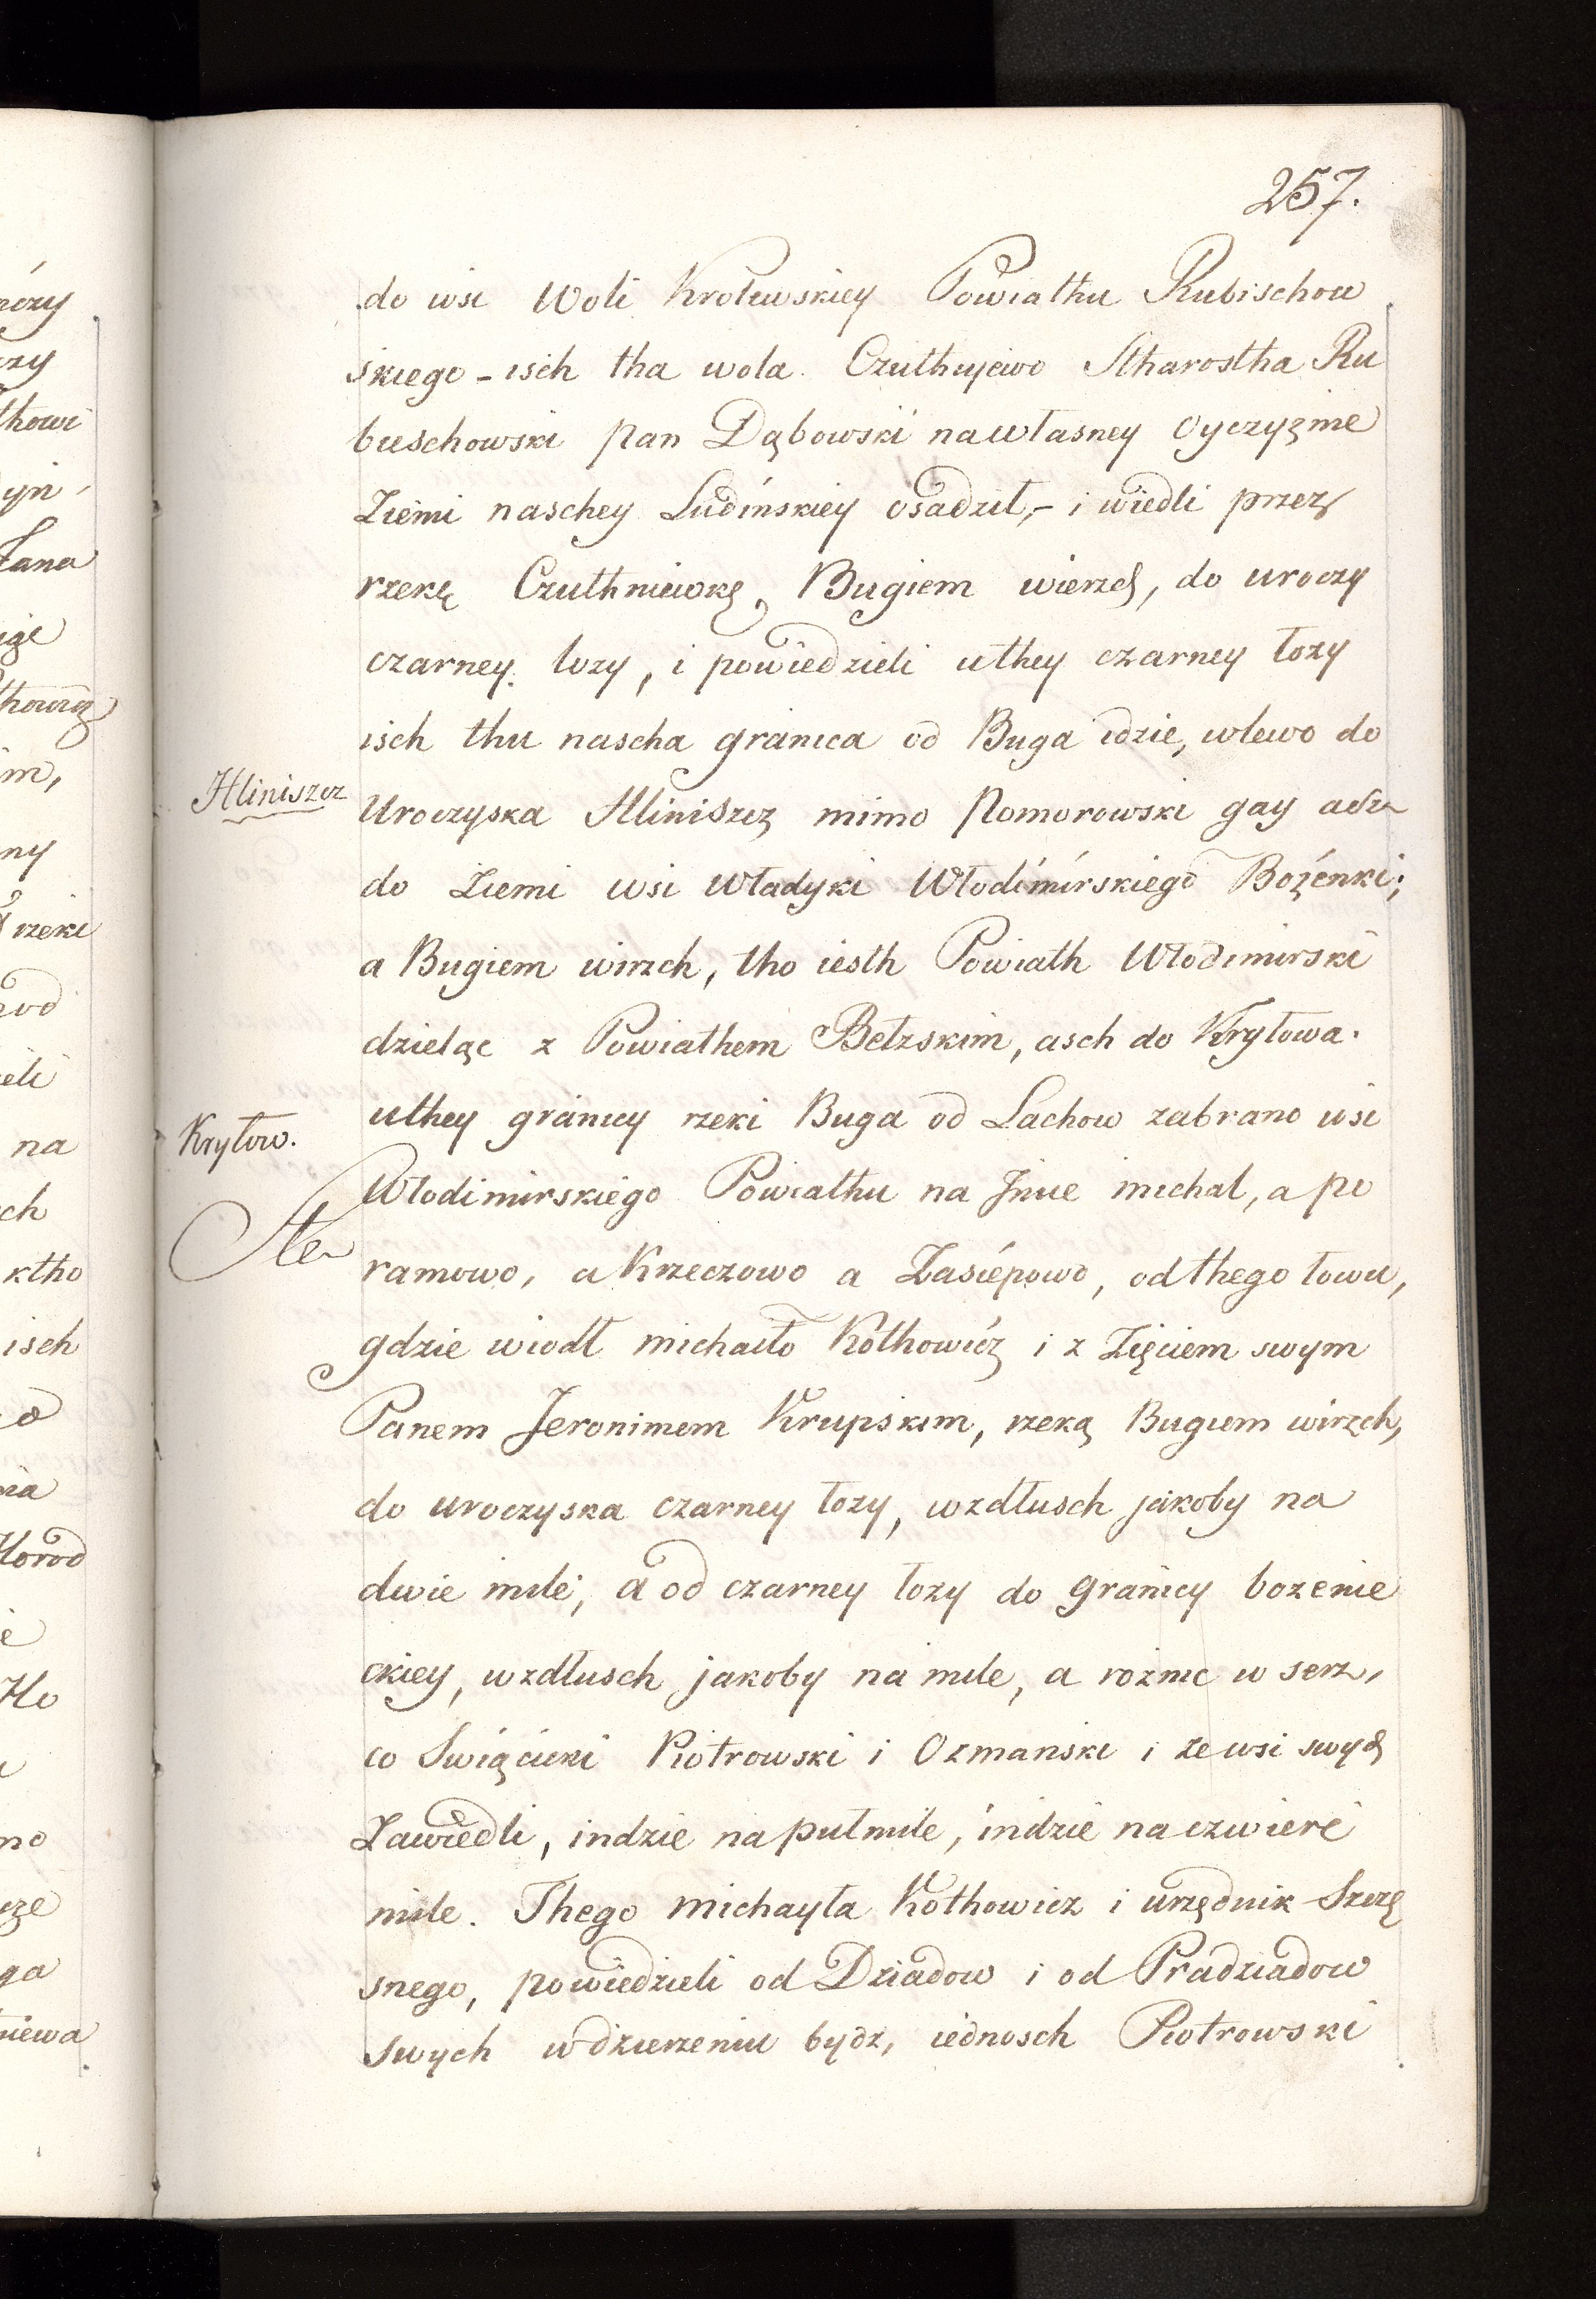 257.
do wsi Woli Krolewskiey Powiathu Rubischow
skiego - isch tha wola Czuthnjewo Stharostha Ru
buschowski pan Dąbowski nawłasney oyczyznie
Ziemi naschey Ludińskiey osadził, - i wiedli przez
rzekę Czuthniewkę, Bugiem wierzch, do uroczy
czarney łozy, i powiedzieli uthey czarney łozy
isch thu nascha granica od Buga idzie, wlewo do
Hliniszcz
Uroczyska Hliniszcz mimo Pomorowski gay
do Ziemi wsi Władyki Włodimirskiego Bożenki;
a Bugiem wirzch, tho iesth Powiath Włodimirski
dzieląc z Powiathem Bełzskim, asch do Kryłowa.
Kryłow.
uthey granicy rzeki Buga od Lachow zabrano wsi
Włodimirskiego Powiathu na Jmie michal, a po
ramowo, a Krzeczowo a Zasiepowo, odthego łowu,
gdzie wiodł michaiło Kothowicz i z Zięciem swym
Panem Jeronimem Krupskim, rzeką Bugiem wirzch,
do uroczyska czarney łozy, wzdłusch jakoby na
dwie mile, a od czarney łozy do granicy bozenie
ckiey, wzdłusch jakoby na mile, a roznie w serz,
co Swiącicki Piotrowski i Ozmanski i ze wsi swych
Zawiedli, indzie na pułmile, indzie na czwierć
mile. Thego michayła Kothowicz i urzędnik Szczę
snego, powiedzieli od Dziadow i od Pradziadow
swych w dzierzeniu bydz, iednosch Piotrowski